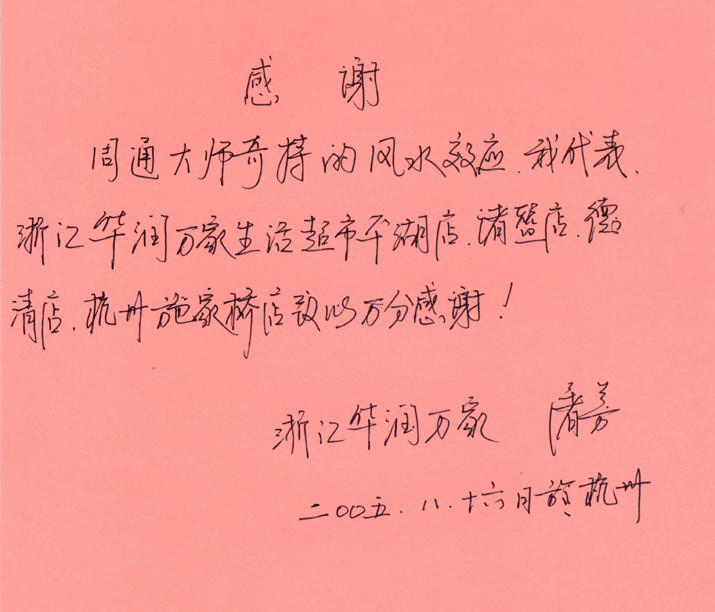 感 谢
周通大师奇特的风水效应.我代表.
浙江华润万家生活超市平湖店.诸暨店.德
清店.杭州施家桥店致以万分感谢!
浙江华润万家 屠芳
二00五.八.十六日於杭州